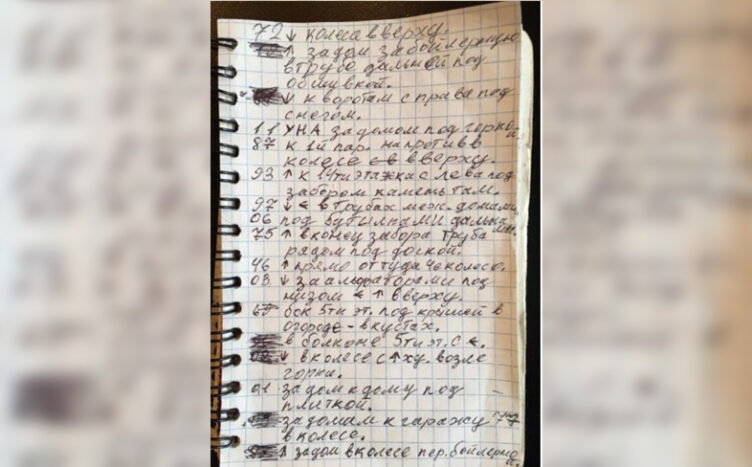 72 ↓ колеса вверху.
↑ задом за бойлерную
в трубе дальней под
обшивкой.
↓ к воротам с права под
снегом.
11 УНА за домом под горкой
87 к 1й пар. напротив в
колесе вверху.
93 ↑ к 14ти этажка с лева под
забором камень там.
97 ↓ ← в трубах меж. домами
06 под бутылками дальна
75 ↑ в конец забора труба
рядом под доской.
46 ↑ прямо оттуда 4е колесо.
03 ↓ за альфаторами под
низом ← ↑ вверху.
67 бок 5ти эт. под крышей в
огороде - в кустах.
в болконе 5ти эт. с ←.
↓ в колесе с ↑ху. возле
горки.
01 за дом к дому под
плиткой.
за домам к гаражу
в колесе.
↑ задом в колесе пер. бойлерно